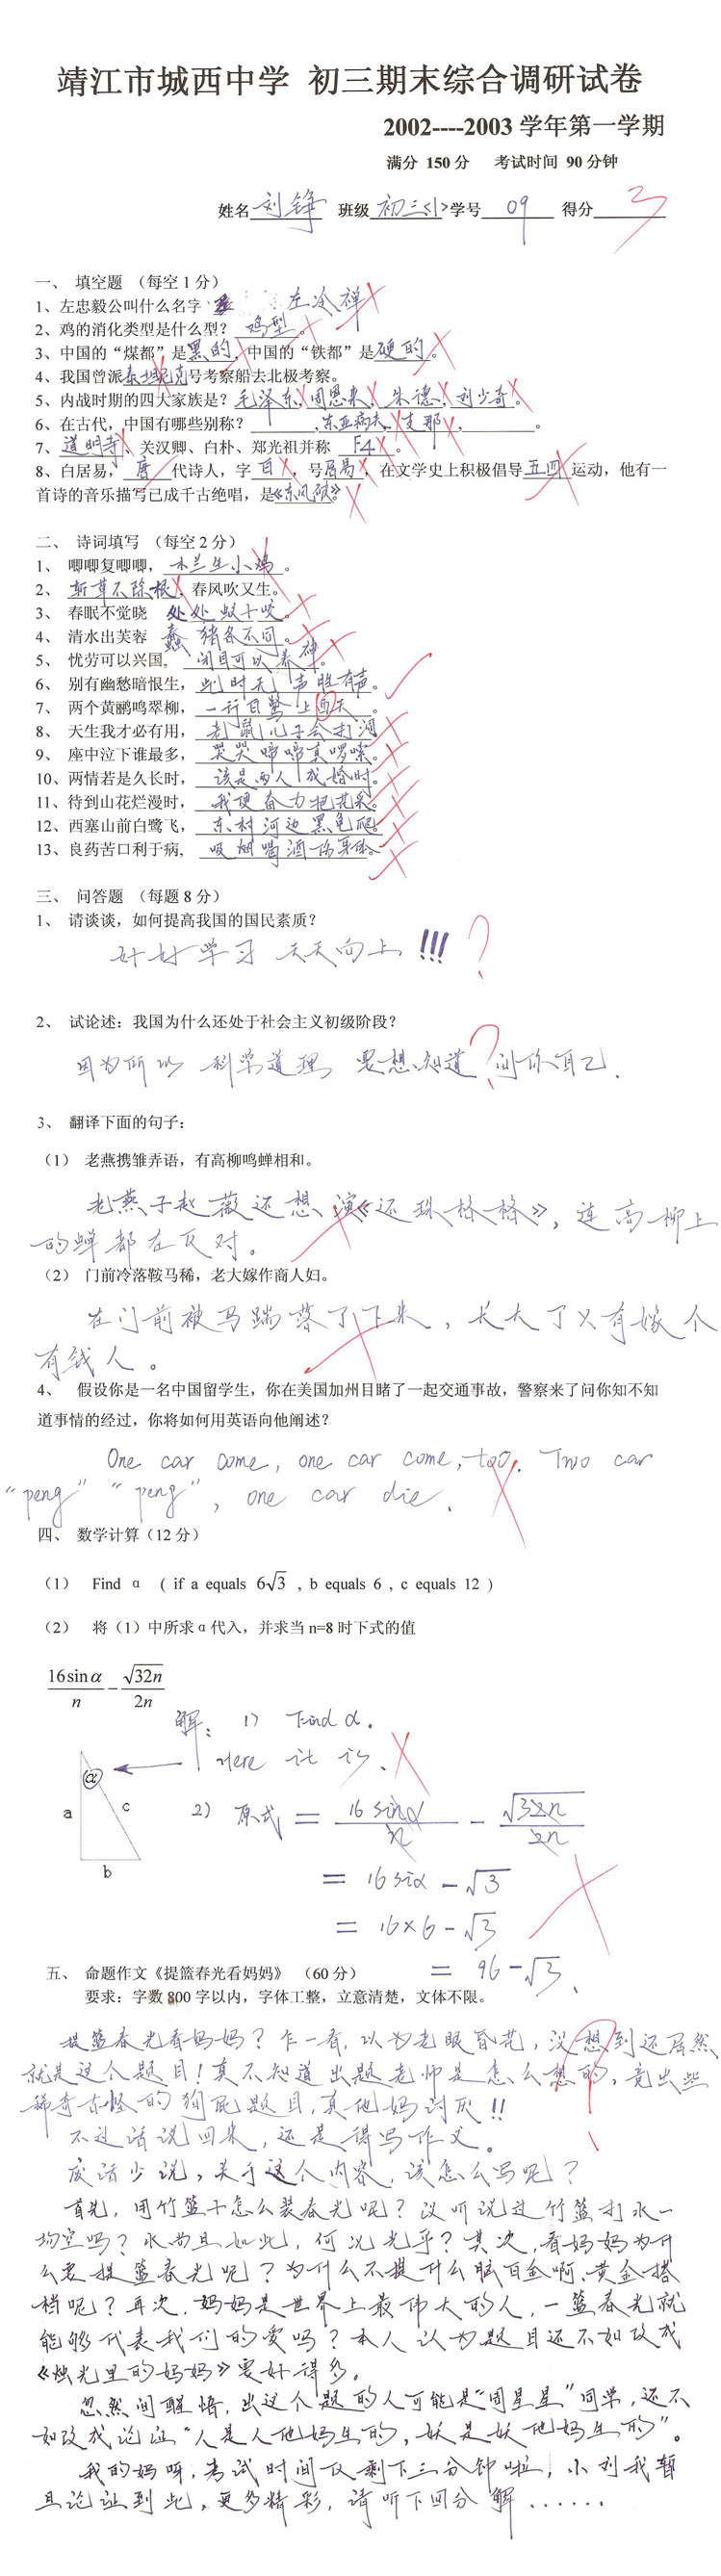 靖江市城西中学 初三期末综合调研试卷
2002----2003 学年第一学期
满分 150 分 考试时间 90 分钟
姓名 刘铮 班级 初三<1> 学号 09 得分 3
一、 填空题 （每空 1 分）
1、左忠毅公叫什么名字 左冷禅
2、鸡的消化类型是什么型? 鸡型。
3、中国的“煤都”是黑的，中国的“铁都”是硬的。
4、我国曾派泰坦尼克号考察船去北极考察。
5、内战时期的四大家族是? 毛泽东，周恩来，朱德，刘少奇。
6、在古代，中国有哪些别称? ，东亚病夫，支那，。
7、道明寺、关汉卿、白朴、郑光祖并称 F4。
8、白居易，唐代诗人，字白，号居易，在文学史上积极倡导五四运动，他有一
首诗的音乐描写已成千古绝唱，是《东风破》。
二、 诗词填写 （每空 2 分）
1、 唧唧复唧唧，木兰生小鸡。
2、 斩草不除根，春风吹又生。
3、 春眠不觉晓 处处蚊子咬。
4、 清水出芙蓉 蠢猪各不同。
5、 忧劳可以兴国, 闭目可以养神。
6、 别有幽愁暗恨生，此时无声胜有声。
7、 两个黄鹂鸣翠柳，一行白鹭上西天。
8、 天生我才必有用，老鼠儿子会打洞
9、 座中泣下谁最多，哭哭啼啼真啰嗦。
10、两情若是久长时，该是两人成婚时。
11、待到山花烂漫时，我便奋力把花采。
12、西塞山前白鹭飞，东村河边黑龟爬。
13、良药苦口利于病，吸烟喝酒伤身体。
三、 问答题 （每题 8 分）
1、 请谈谈，如何提高我国的国民素质?
好好学习 天天向上!!! ?
2、 试论述：我国为什么还处于社会主义初级阶段?
因为所以 科学道理 要想知道 问你自己. ?
3、 翻译下面的句子：
（1） 老燕携雏弄语，有高柳鸣蝉相和。
老燕子赵薇还想演《还珠格格》，连高柳上
的蝉都在反对。
（2） 门前冷落鞍马稀，老大嫁作商人妇。
在门前被马踹落了下来，长大了只有嫁个
有钱人。
4、 假设你是一名中国留学生，你在美国加州目睹了一起交通事故，警察来了问你知不知
道事情的经过，你将如何用英语向他阐述?
One car come, one car come, too. Two car
“peng” “peng”, one car die.
四、 数学计算（12 分）
（1） Find α ( if a equals 6√3 , b equals 6 , c equals 12 )
（2） 将（1）中所求α代入，并求当 n=8 时下式的值
16sinα/n − √32n/2n
解: 1) Find α.
Here it is.
α
a c
b
2) 原式 = 16sinα/n − √32n/2n
= 16siα − √3
= 16×6 − √3
= 96 − √3.
五、 命题作文《提篮春光看妈妈》 （60 分）
要求：字数 800 字以内，字体工整，立意清楚，文体不限。
提篮春光看妈妈? 乍一看，以为老眼昏花，没想到还居然
就是这个题目! 真不知道出题老师是怎么想的，竟出些
稀奇古怪的狗屁题目，真他妈讨厌!!
不过话说回来，还是得写作文。
废话少说，关于这个内容，该怎么写呢?
首先，用竹篮子怎么装春光呢? 没听说过竹篮打水一
场空吗? 水尚且如此，何况光乎? 其次，看妈妈为什
么要提篮春光呢? 为什么不提什么脑白金啊、黄金搭
档呢? 再次，妈妈是世界上最伟大的人，一篮春光就
能够代表我们的爱吗? 本人认为题目还不如改成
《烛光里的妈妈》要好得多。
忽然间醒悟，出这个题的人可能是“周星星”同学，还不
如改成论证“人是人他妈生的，妖是妖他妈生的”。
我的妈呀，考试时间仅剩下三分钟啦，小刘我暂
且论证到此，更多精彩，请听下回分解......